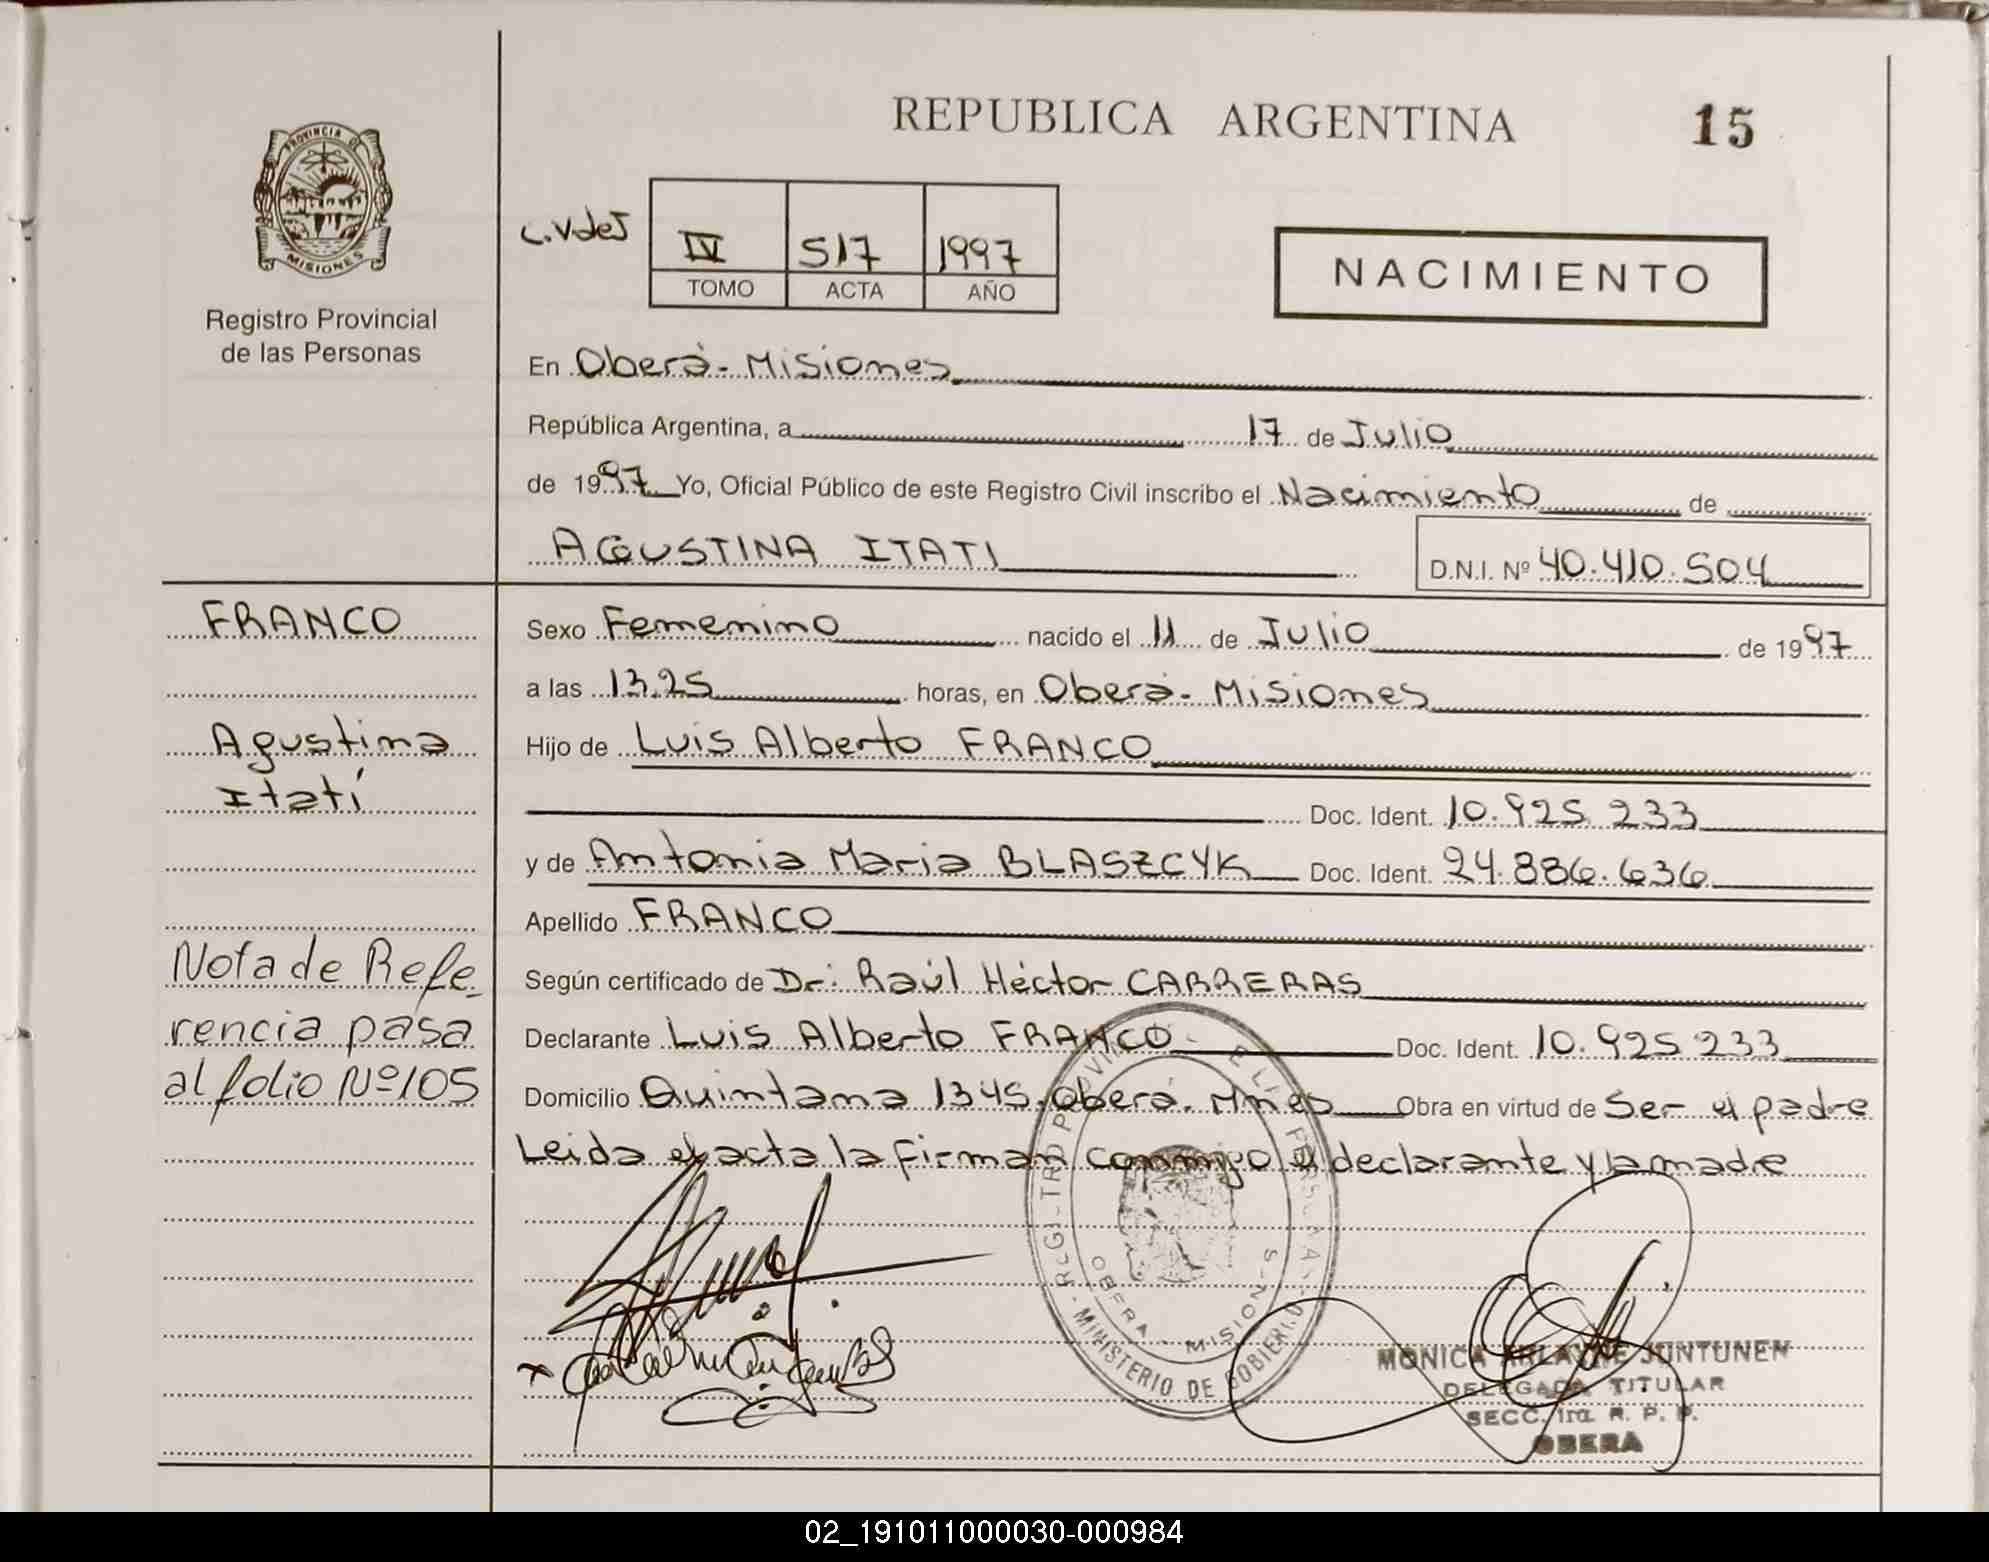 REPUBLICA ARGENTINA
15
PROVINCIA DE
MISIONES
Registro Provincial
de las Personas
C.VdeJ
IV 517 1997
TOMO ACTA AÑO
NACIMIENTO
En Oberá- Misiones
República Argentina, a 17 de Julio
de 1997 Yo, Oficial Público de este Registro Civil inscribo el Nacimiento de
AGUSTINA ITATI
D.N.I. Nº 40.410.504
FRANCO
Agustina
Itatí
Nota de Refe-
rencia pasa
al folio Nº 105
Sexo Femenino nacido el 11 de Julio de 1997
a las 13.25 horas, en Oberá- Misiones
Hijo de Luis Alberto FRANCO
Doc. Ident. 10.925.233
y de Antonia Maria BLASZCYK Doc. Ident. 24.886.636
Apellido FRANCO
Según certificado de Dr. Raúl Héctor CARRERAS
Declarante Luis Alberto FRANCO Doc. Ident. 10.925.233
Domicilio Quintana 1345. Oberá. Mnes Obra en virtud de Ser el padre
Leida el acta la firman conmigo el declarante y la madre
MINISTERIO DE GOBIERNO
OBERA - MISIONES
MONICA ARLAYNE JUNTUNEN
DELEGADA TITULAR
SECC. 1ra. R. P. P.
OBERA
02_191011000030-000984